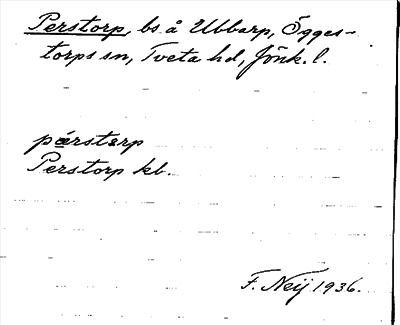 Perstorp, bs å Ubbarp, Ögges-
torps sn, Tveta hd, Jönk. l.
pærstərp
Perstorp kb.
F. Neij 1936.